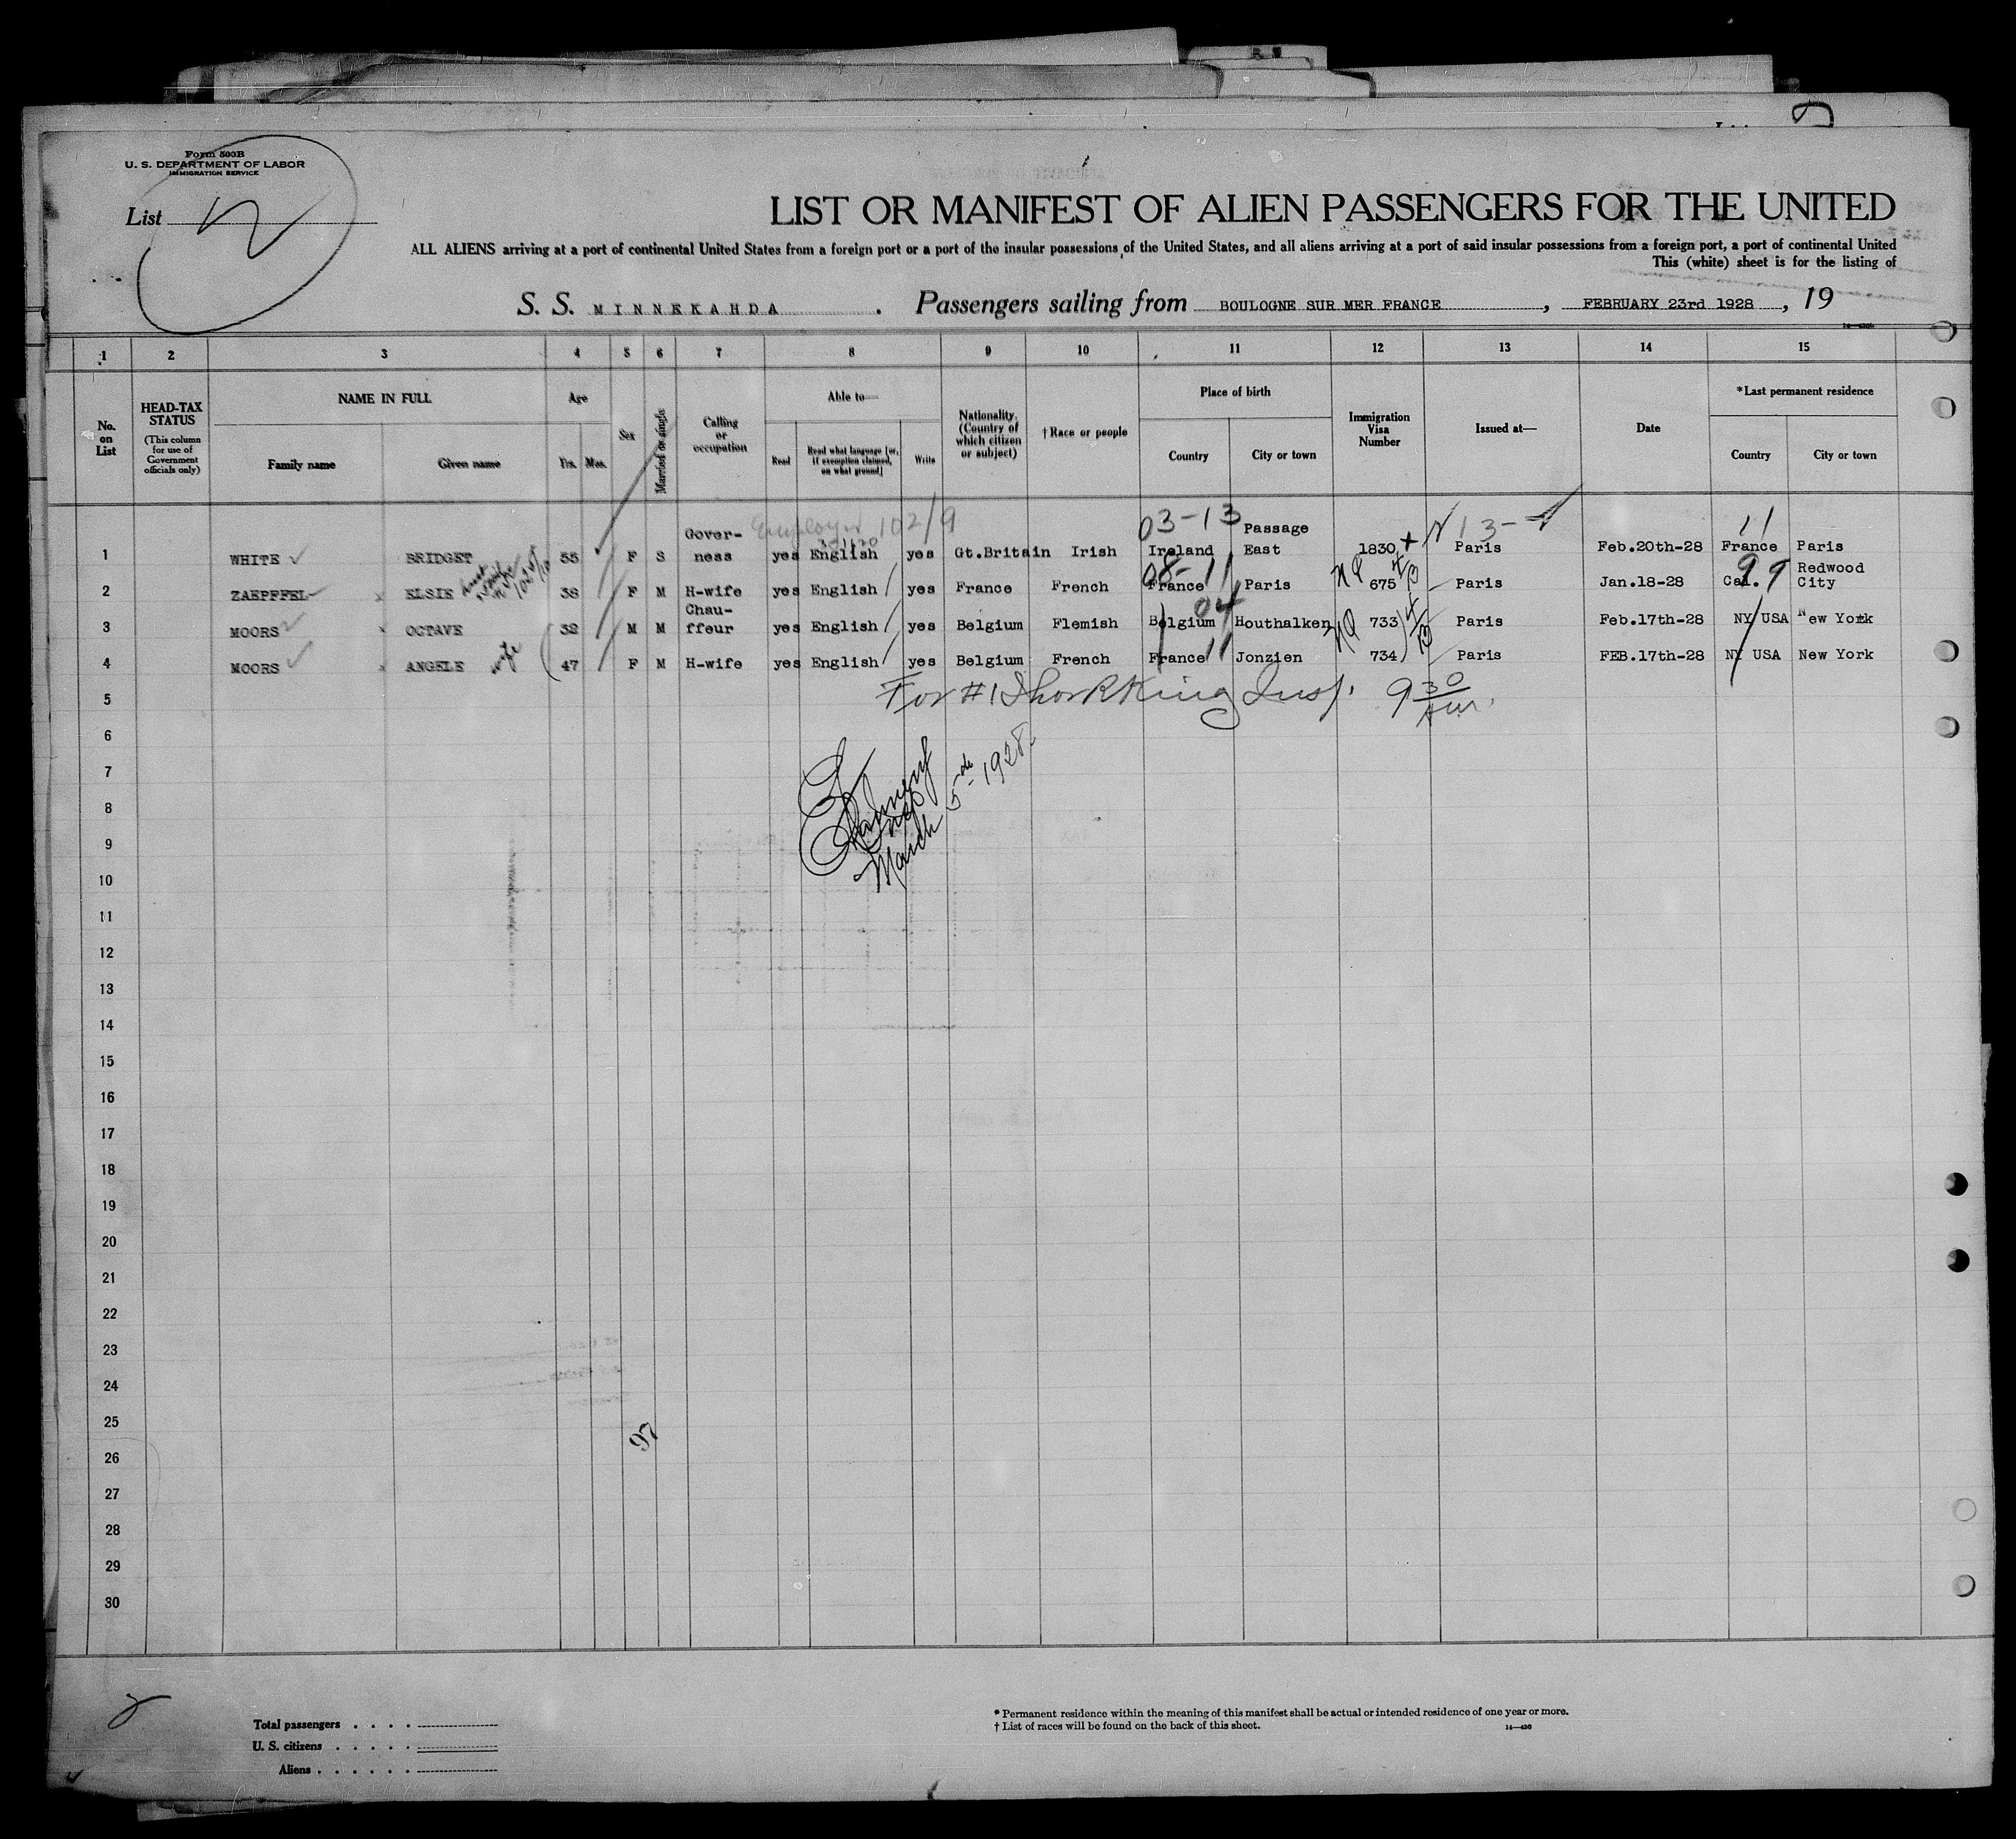 Form 500B
U. S. DEPARTMENT OF LABOR
IMMIGRATION SERVICE
List 2
LIST OR MANIFEST OF ALIEN PASSENGERS FOR THE UNITED
ALL ALIENS arriving at a port of continental United States from a foreign port or a port of the insular possessions of the United States, and all aliens arriving at a port of said insular possessions from a foreign port, a port of continental United
This (white) sheet is for the listing of
S. S. MINNEKAHDA . Passengers sailing from BOULOGNE SUR MER FRANCE , FEBRUARY 23rd 1928 , 19
1 2 3 4 5 6 7 8 9 10 11 12 13 14 15
No. on List
HEAD-TAX STATUS (This column for use of Government officials only)
NAME IN FULL
Family name Given name
Age
Yrs. Mos.
Sex
Married or single
Calling or occupation
Able to—
Read Read what language [or, if exemption claimed, on what ground] Write
Nationality. (Country of which citizen or subject)
†Race or people
Place of birth
Country City or town
Immigration Visa Number
Issued at—
Date
*Last permanent residence
Country City or town
Employer 102/9 03-13 13- 11
1 WHITE BRIDGET 55 F S Gover-ness yes English yes Gt.Britain Irish Ireland Passage East 1830 Paris Feb.20th-28 France Paris
08-11 99
2 ZAEPFFEL ELSIE 38 F M H-wife yes English yes France French France Paris 675 Paris Jan.18-28 Cal. Redwood City
04
3 MOORS OCTAVE 32 M M Chau-ffeur yes English yes Belgium Flemish Belgium Houthalken 733 Paris Feb.17th-28 NY USA New York
4 MOORS ANGELE wife 47 F M H-wife yes English yes Belgium French France 11 Jonzien 734 Paris FEB.17th-28 NY USA New York
5 For #1 Insp. 9 30 am.
6
7
8
9
March 5th 1928
10
11
12
13
14
15
16
17
18
19
20
21
22
23
24
25
97
26
27
28
29
30
Total passengers . . . .
U. S. citizens . . . . .
Aliens . . . . . .
* Permanent residence within the meaning of this manifest shall be actual or intended residence of one year or more.
† List of races will be found on the back of this sheet.
14—430